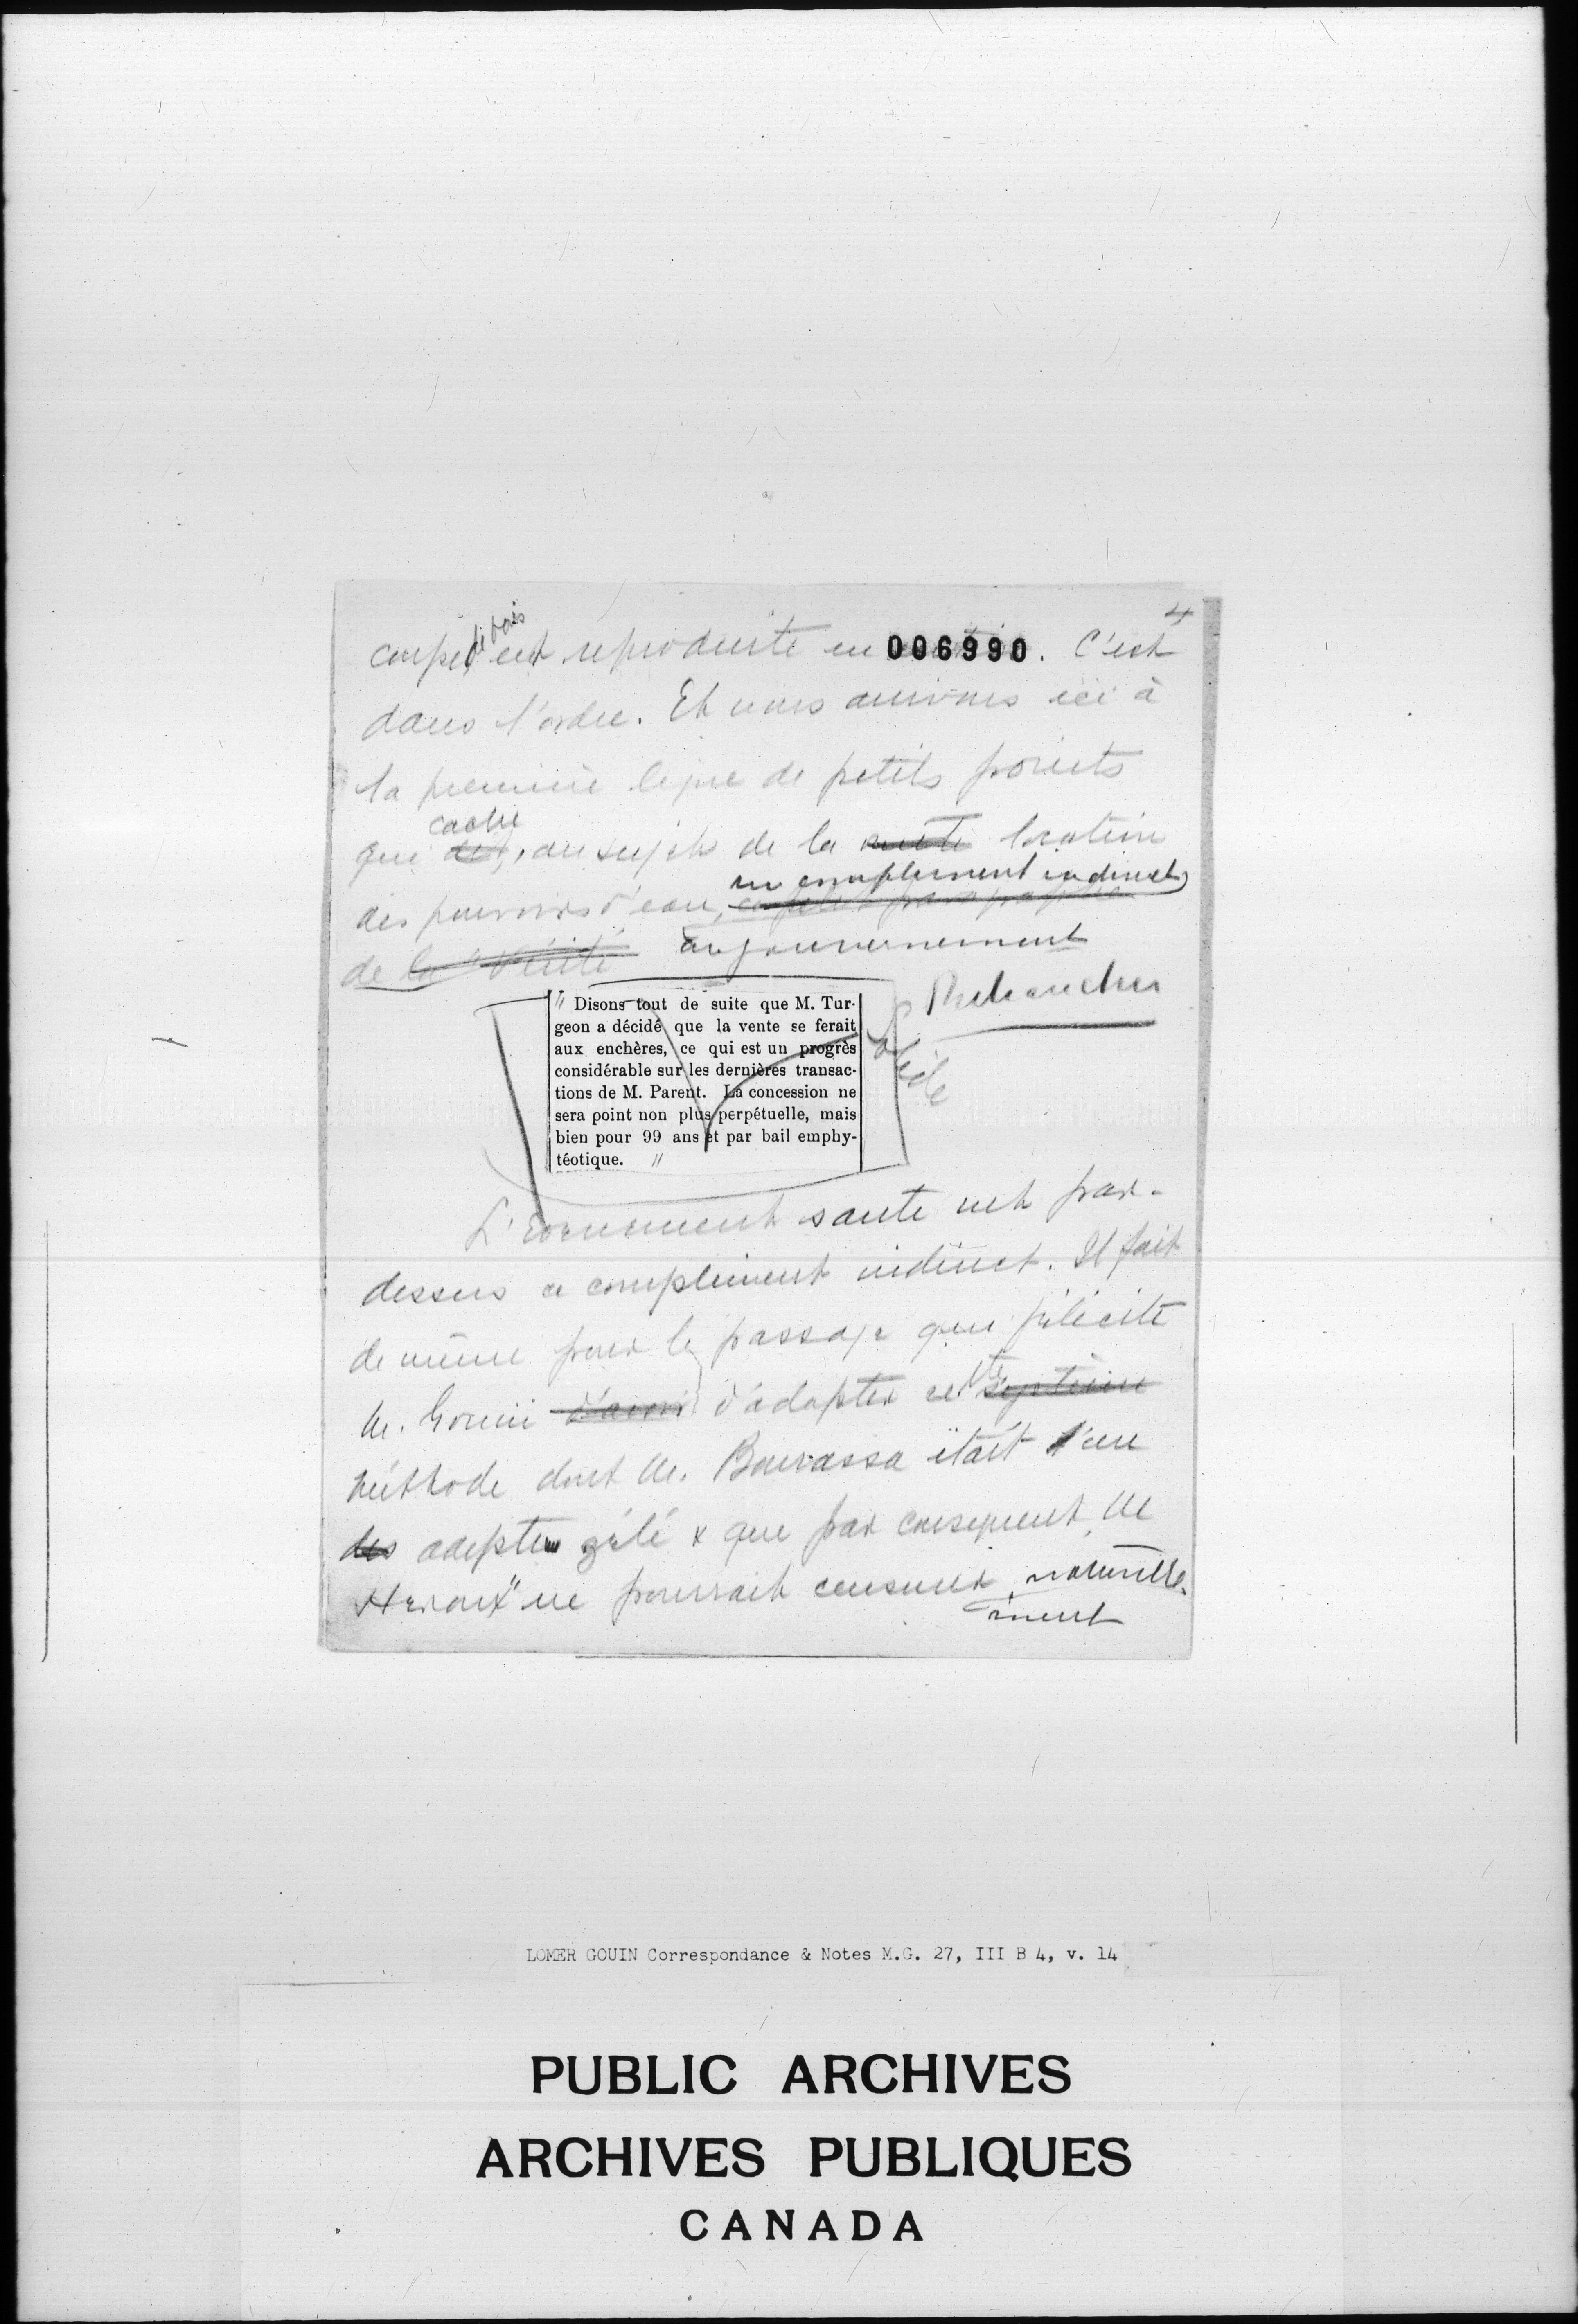 4
coupes de bois est reproduite en 006990. C'est
dans l'ordre. Et nous arrivons ici à
la première ligne de petits points
qui cache, au sujet de la location
des pouvoirs d'eau, un compliment indirect
de la "Vérité" au gouvernement
Retrancher
" Disons tout de suite que M. Tur-
geon a décidé que la vente se ferait
aux enchères, ce qui est un progrès
considérable sur les dernières transac-
tions de M. Parent. La concession ne
sera point non plus perpétuelle, mais
bien pour 99 ans et par bail emphy-
téotique. "
L'Evenement saute net par-
dessus ce compliment indirect. Il fait
de même pour le passage qui félicite
M. Gouin d'avoir d'adopter cette système
méthode dont M. Bourassa était l'un
des adeptes zélé & que par conséquent M
Heroux ne pourrait censurer naturelle-
ment
LOMER GOUIN Correspondance & Notes M.G. 27, III B 4, v. 14
PUBLIC ARCHIVES
ARCHIVES PUBLIQUES
CANADA